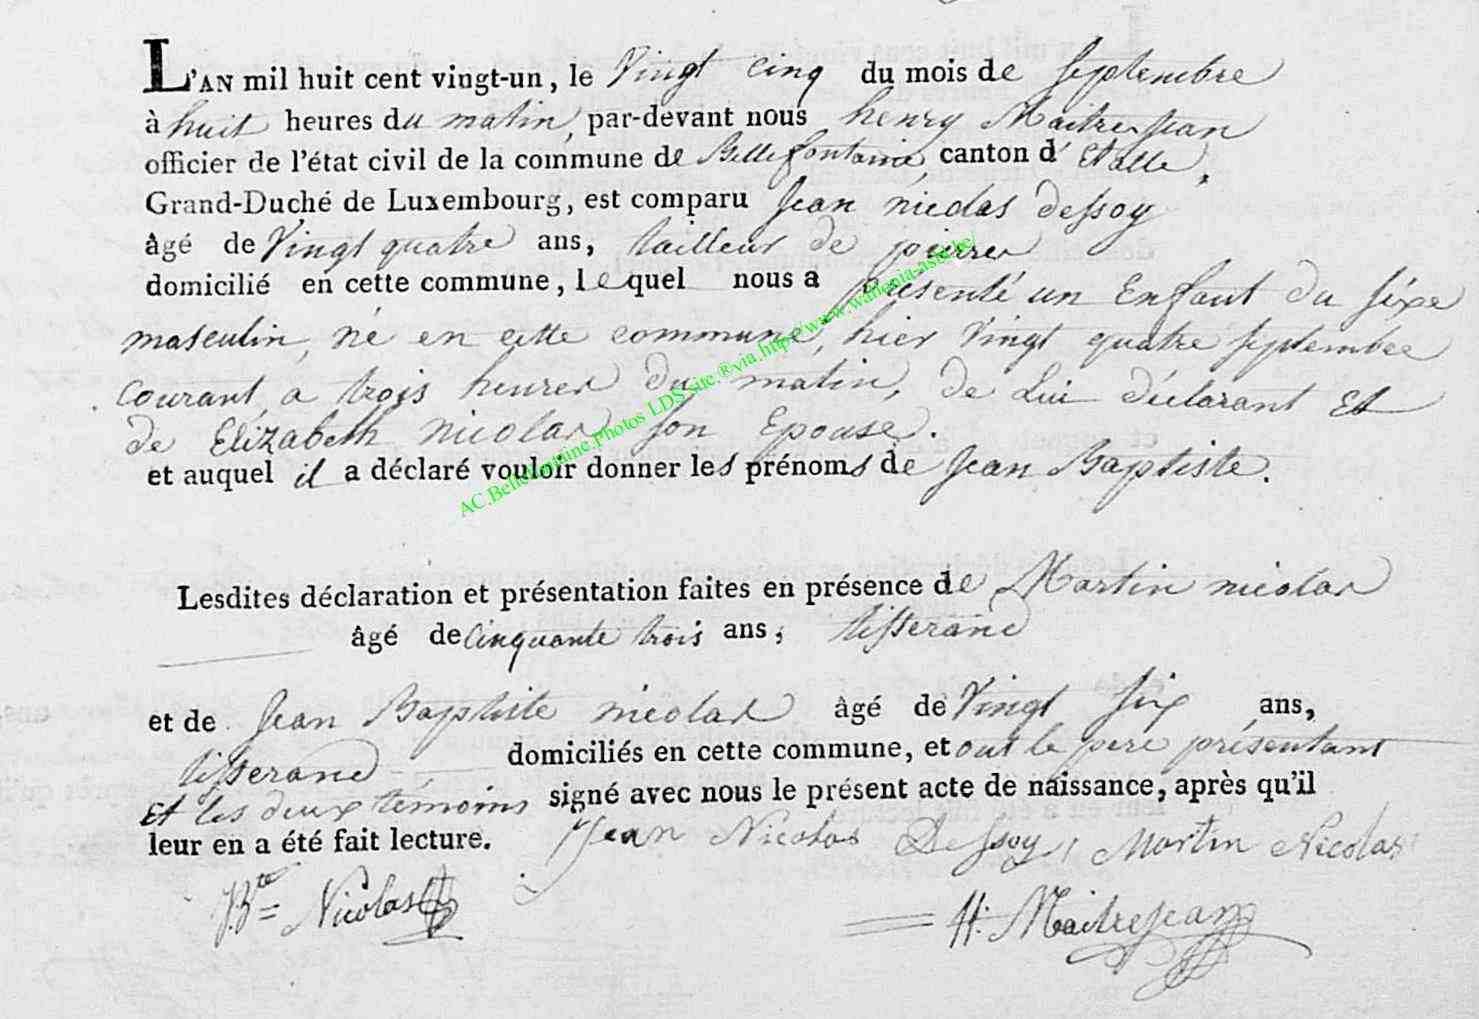 L'AN mil huit cent vingt-un, le Vingt cinq du mois de septembre
à huit heures du matin, par-devant nous henry Maitrejean
officier de l'état civil de la commune de Bellefontaine, canton d' Etalle,
Grand-Duché de Luxembourg, est comparu Jean nicolas Dessoy
âgé de Vingt quatre ans, tailleur de pierres
domicilié en cette commune, lequel nous a présenté un Enfant du séxe
masculin, né en cette commune, hier Vingt quatre septembre
courant, a trois heures du matin, de Lui déclarant Et
de Elizabeth nicolas son Epouse.
et auquel il a déclaré vouloir donner les prénoms de Jean Baptiste.
AC.Bellefontaine.Photos LDS site.®via.http://www.wallonia-asbl.be/
Lesdites déclaration et présentation faites en présence de Martin nicolas
âgé de Cinquante trois ans, tisserand
et de Jean Baptiste nicolas âgé de Vingt six ans,
tisserand domiciliés en cette commune, et ont le pere présentant
Et les deux témoins signé avec nous le présent acte de naissance, après qu'il
leur en a été fait lecture. Jean Nicolas Dessoy, Martin Nicolas
J. Bte = Nicolas H. Maitrejean